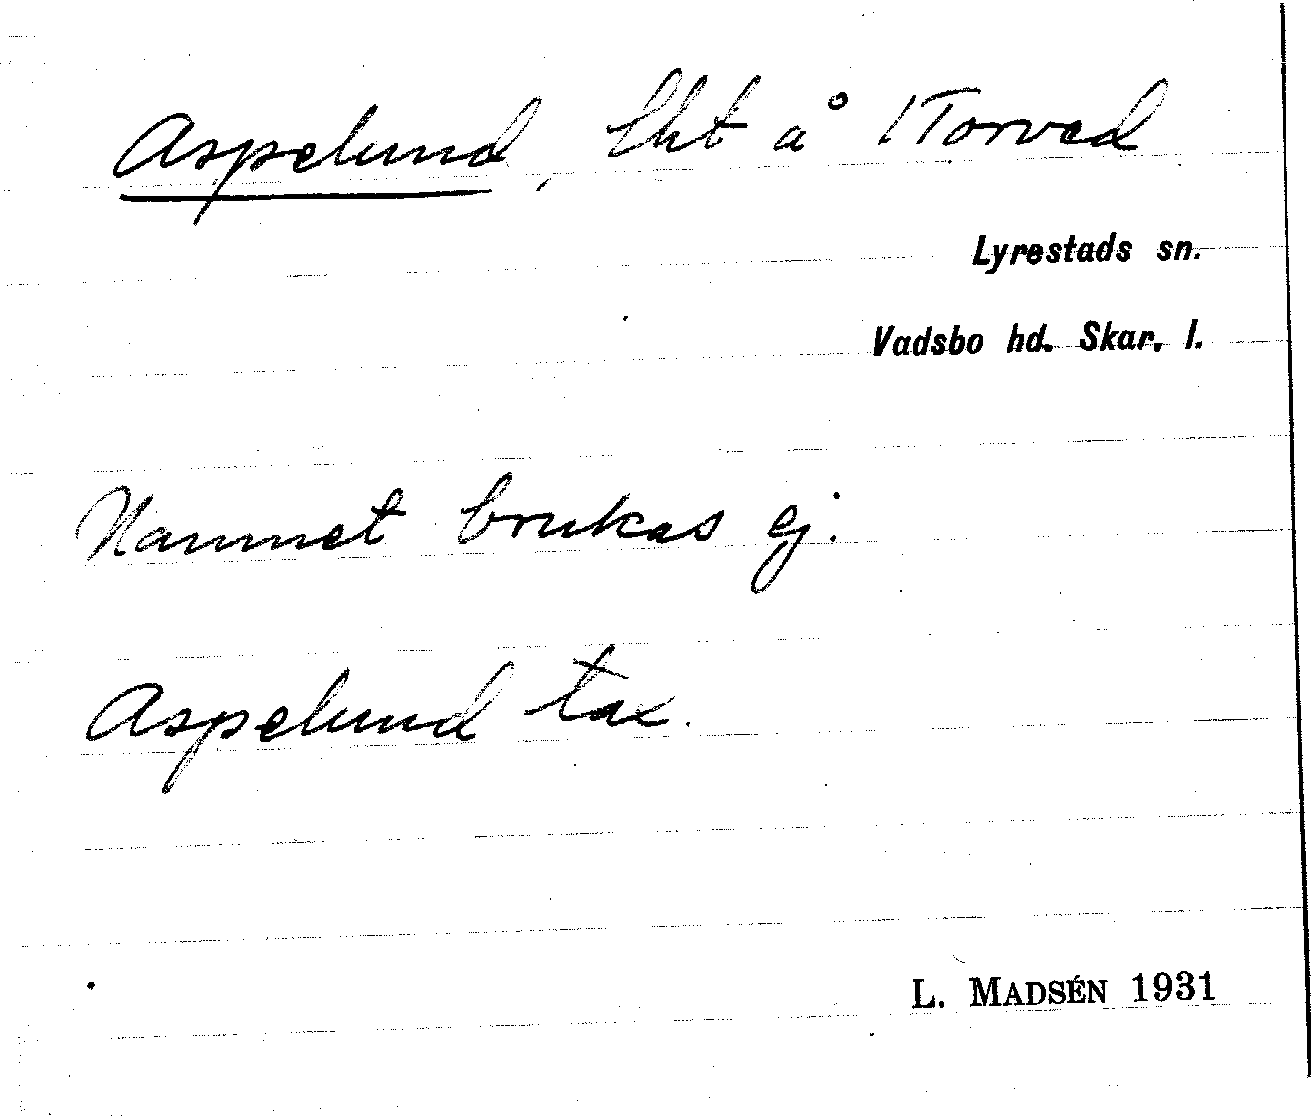 Aspelund, lht å 1 Torved
Lyrestads sn.
Vadsbo hd. Skar. l.
Namnet brukas ej.
Aspelund tax.
L. MADSÉN 1931